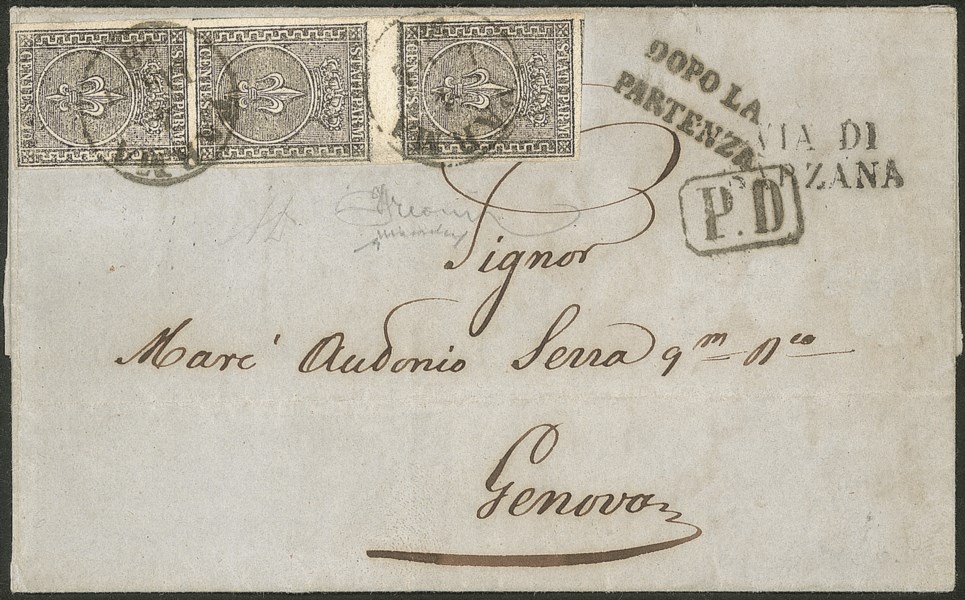 STATI PARM.
CENTES. 10
STATI PARM.
CENTES. 10
STATI PARM.
PARMA
DOPO LA
PARTENZA
VIA DI
SARZANA
P.D
Signor
Marc' Antonio Serra qm
Genova